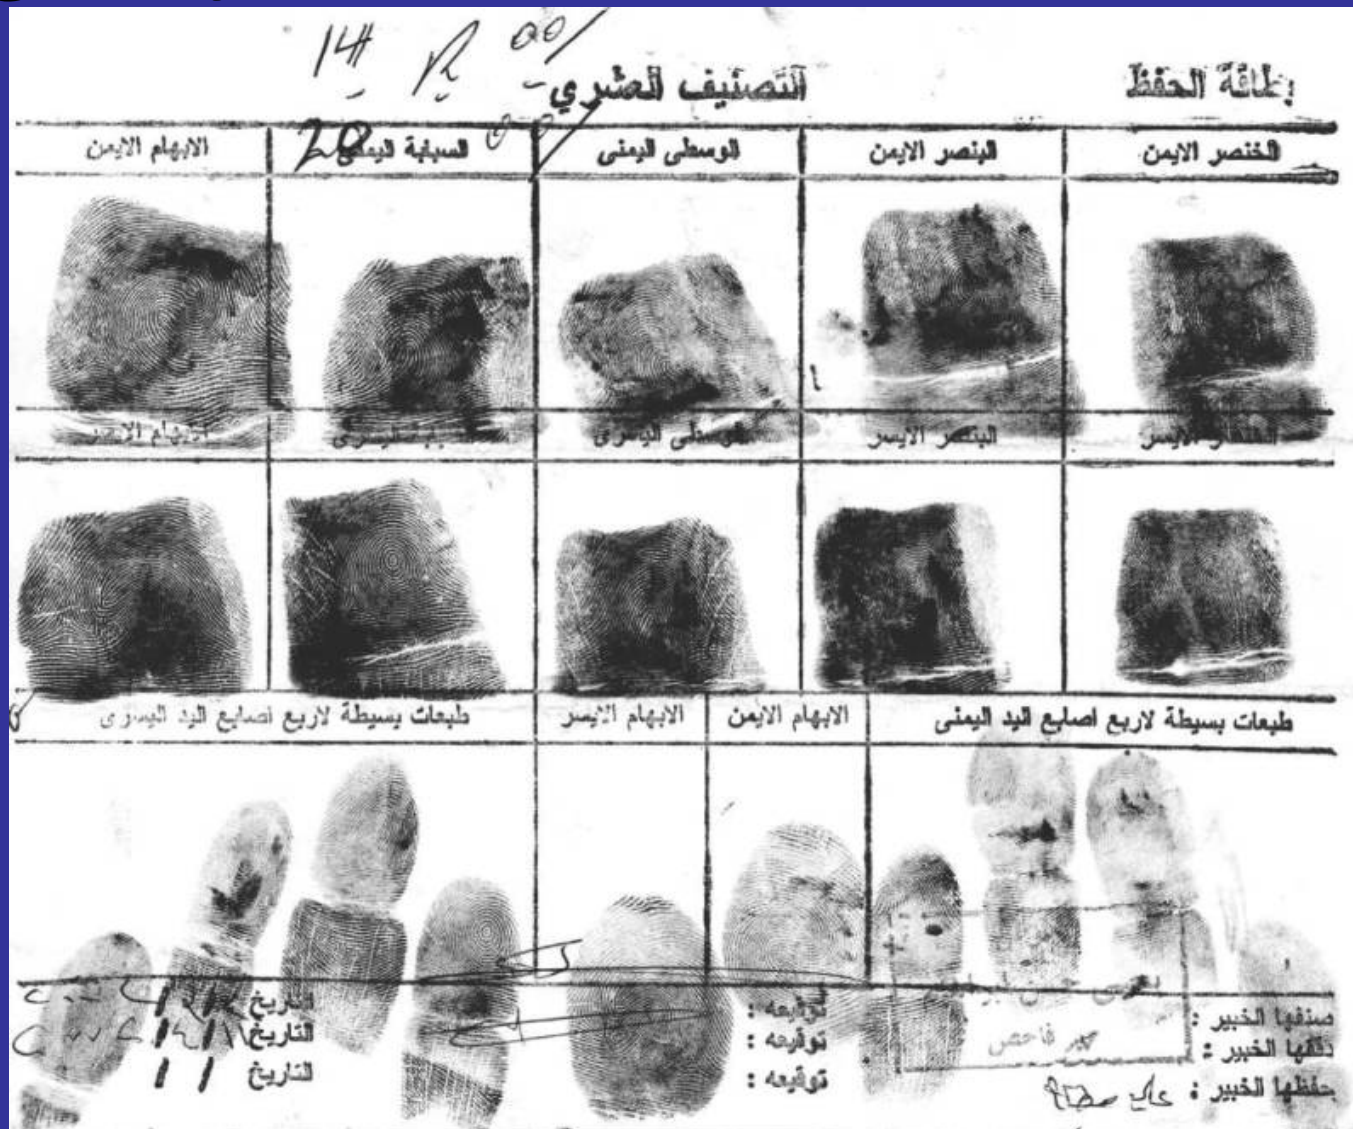 14 R 00/
بطاقة الحفظ التصنيف العشري
20 00/
الخنصر الايمن البنصر الايمن الوسطى اليمنى السبابة اليمنى الابهام الايمن
الخنصر الايسر البنصر الايسر الوسطى اليسرى السبابة اليسرى الابهام الايسر
طبعات بسيطة لاربع اصابع اليد اليمنى الابهام الايمن الابهام الايسر طبعات بسيطة لاربع اصابع اليد اليسرى
صنفها الخبير : توقيعه : التاريخ / /
دققها الخبير : خبير فاحص توقيعه : التاريخ / /
حفظها الخبير : توقيعه : التاريخ / /